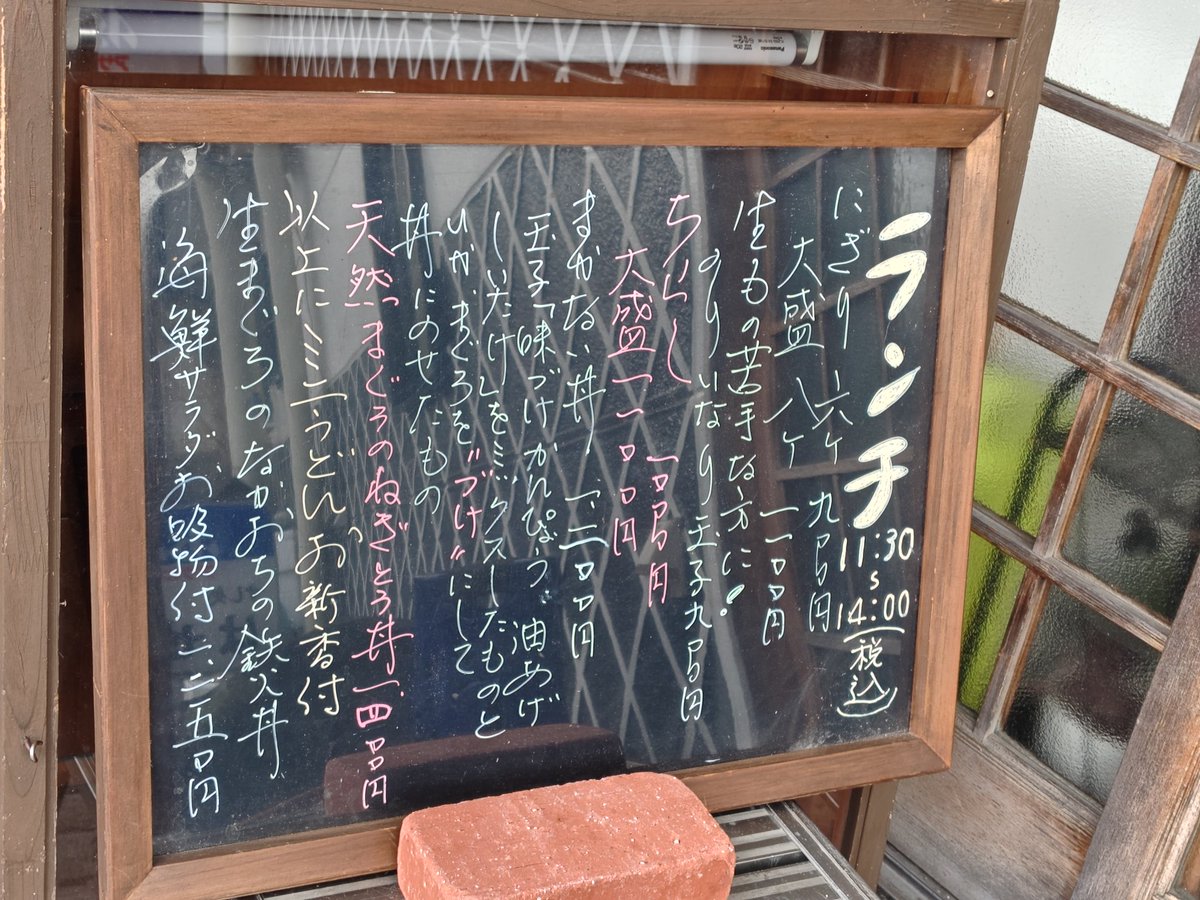 ランチ 11:30〜14:00 税込
にぎり 六ヶ 九〇〇円
大盛 八ヶ 一一〇〇円
生もの苦手な方に!
のりいなり玉子九〇〇円
ちらし 一〇〇〇円
大盛一一〇〇円
まかない丼 一、二〇〇円
玉子「味づけかんぴょう、油あげ
しいたけ」をミックスしたものと
いか、まぐろを"づけ"にして
丼にのせたもの
天然まぐろのねぎとろ丼一、四〇〇円
以上にミニうどんお新香付
生まぐろのなかおちの鉄火丼
海鮮サラダお吸物付 二、二五〇円
Panasonic